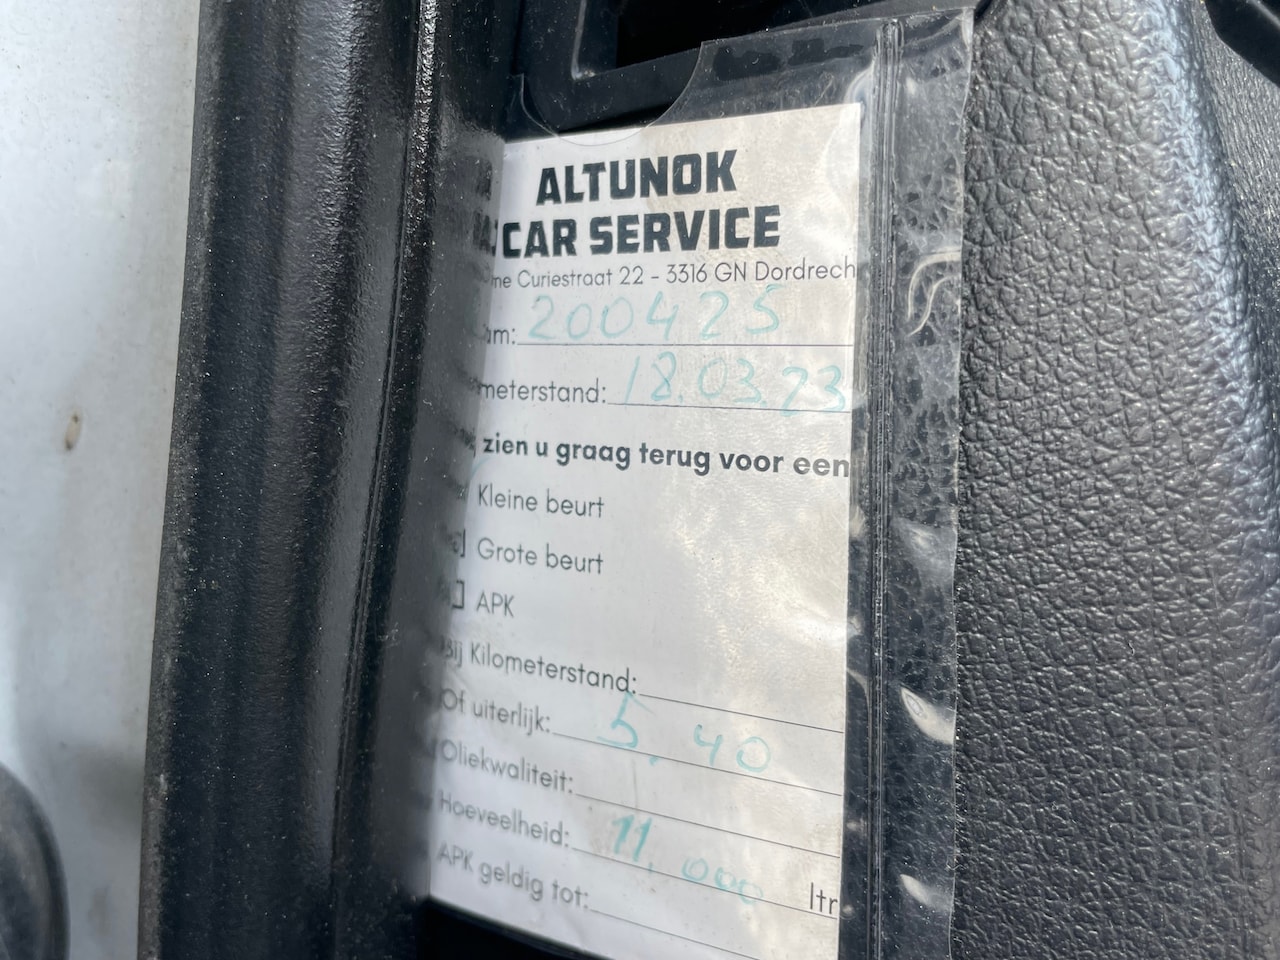 ALTUNOK
CAR SERVICE
ne Curiestraat 22 - 3316 GN Dordrech
um: 200425
meterstand: 18.03.23
zien u graag terug voor een
Kleine beurt
Grote beurt
APK
Bij Kilometerstand:
Of uiterlijk: 5.40
Oliekwaliteit:
Hoeveelheid: 11.000 ltr
APK geldig tot: